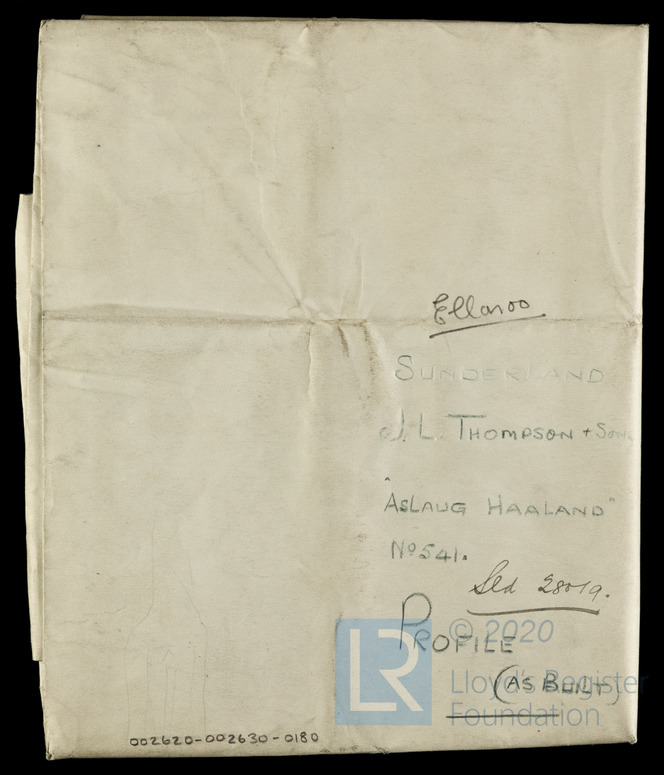 Ellaroo
SUNDERLAND
J. L. THOMPSON + SONS
"ASLAUG HAALAND"
No 541.
28019.
PROFILE
(AS BUILT)
LR
© 2020
Lloyd's Register
Foundation
002620-002630-0180